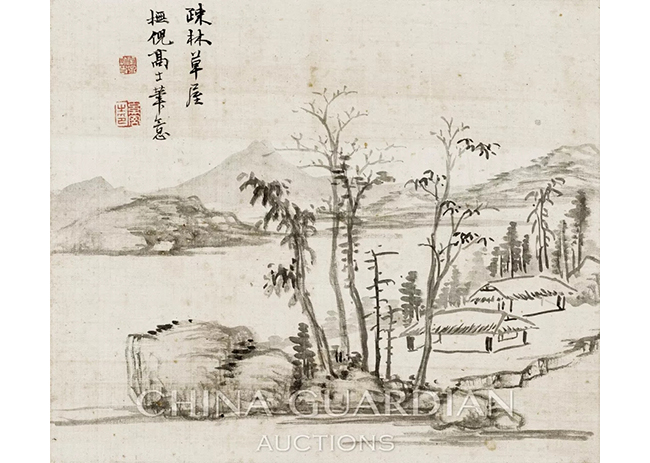 疎林草屋
橅倪高士筆意
CHINA GUARDIAN
AUCTIONS